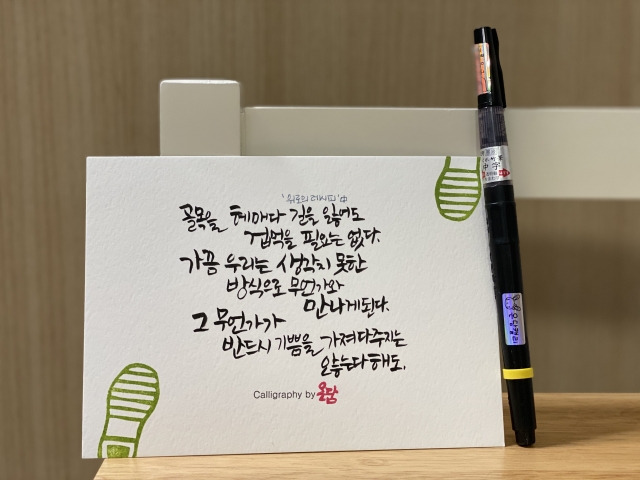 '위로의 레시피' 中
골목을 헤매다 길을 잃어도
겁먹을 필요는 없다.
가끔 우리는 생각지 못한
방식으로 무언가와
만나게된다.
그 무언가가
반드시 기쁨을 가져다주지는
않는다해도.
Calligraphy by 온담
中字